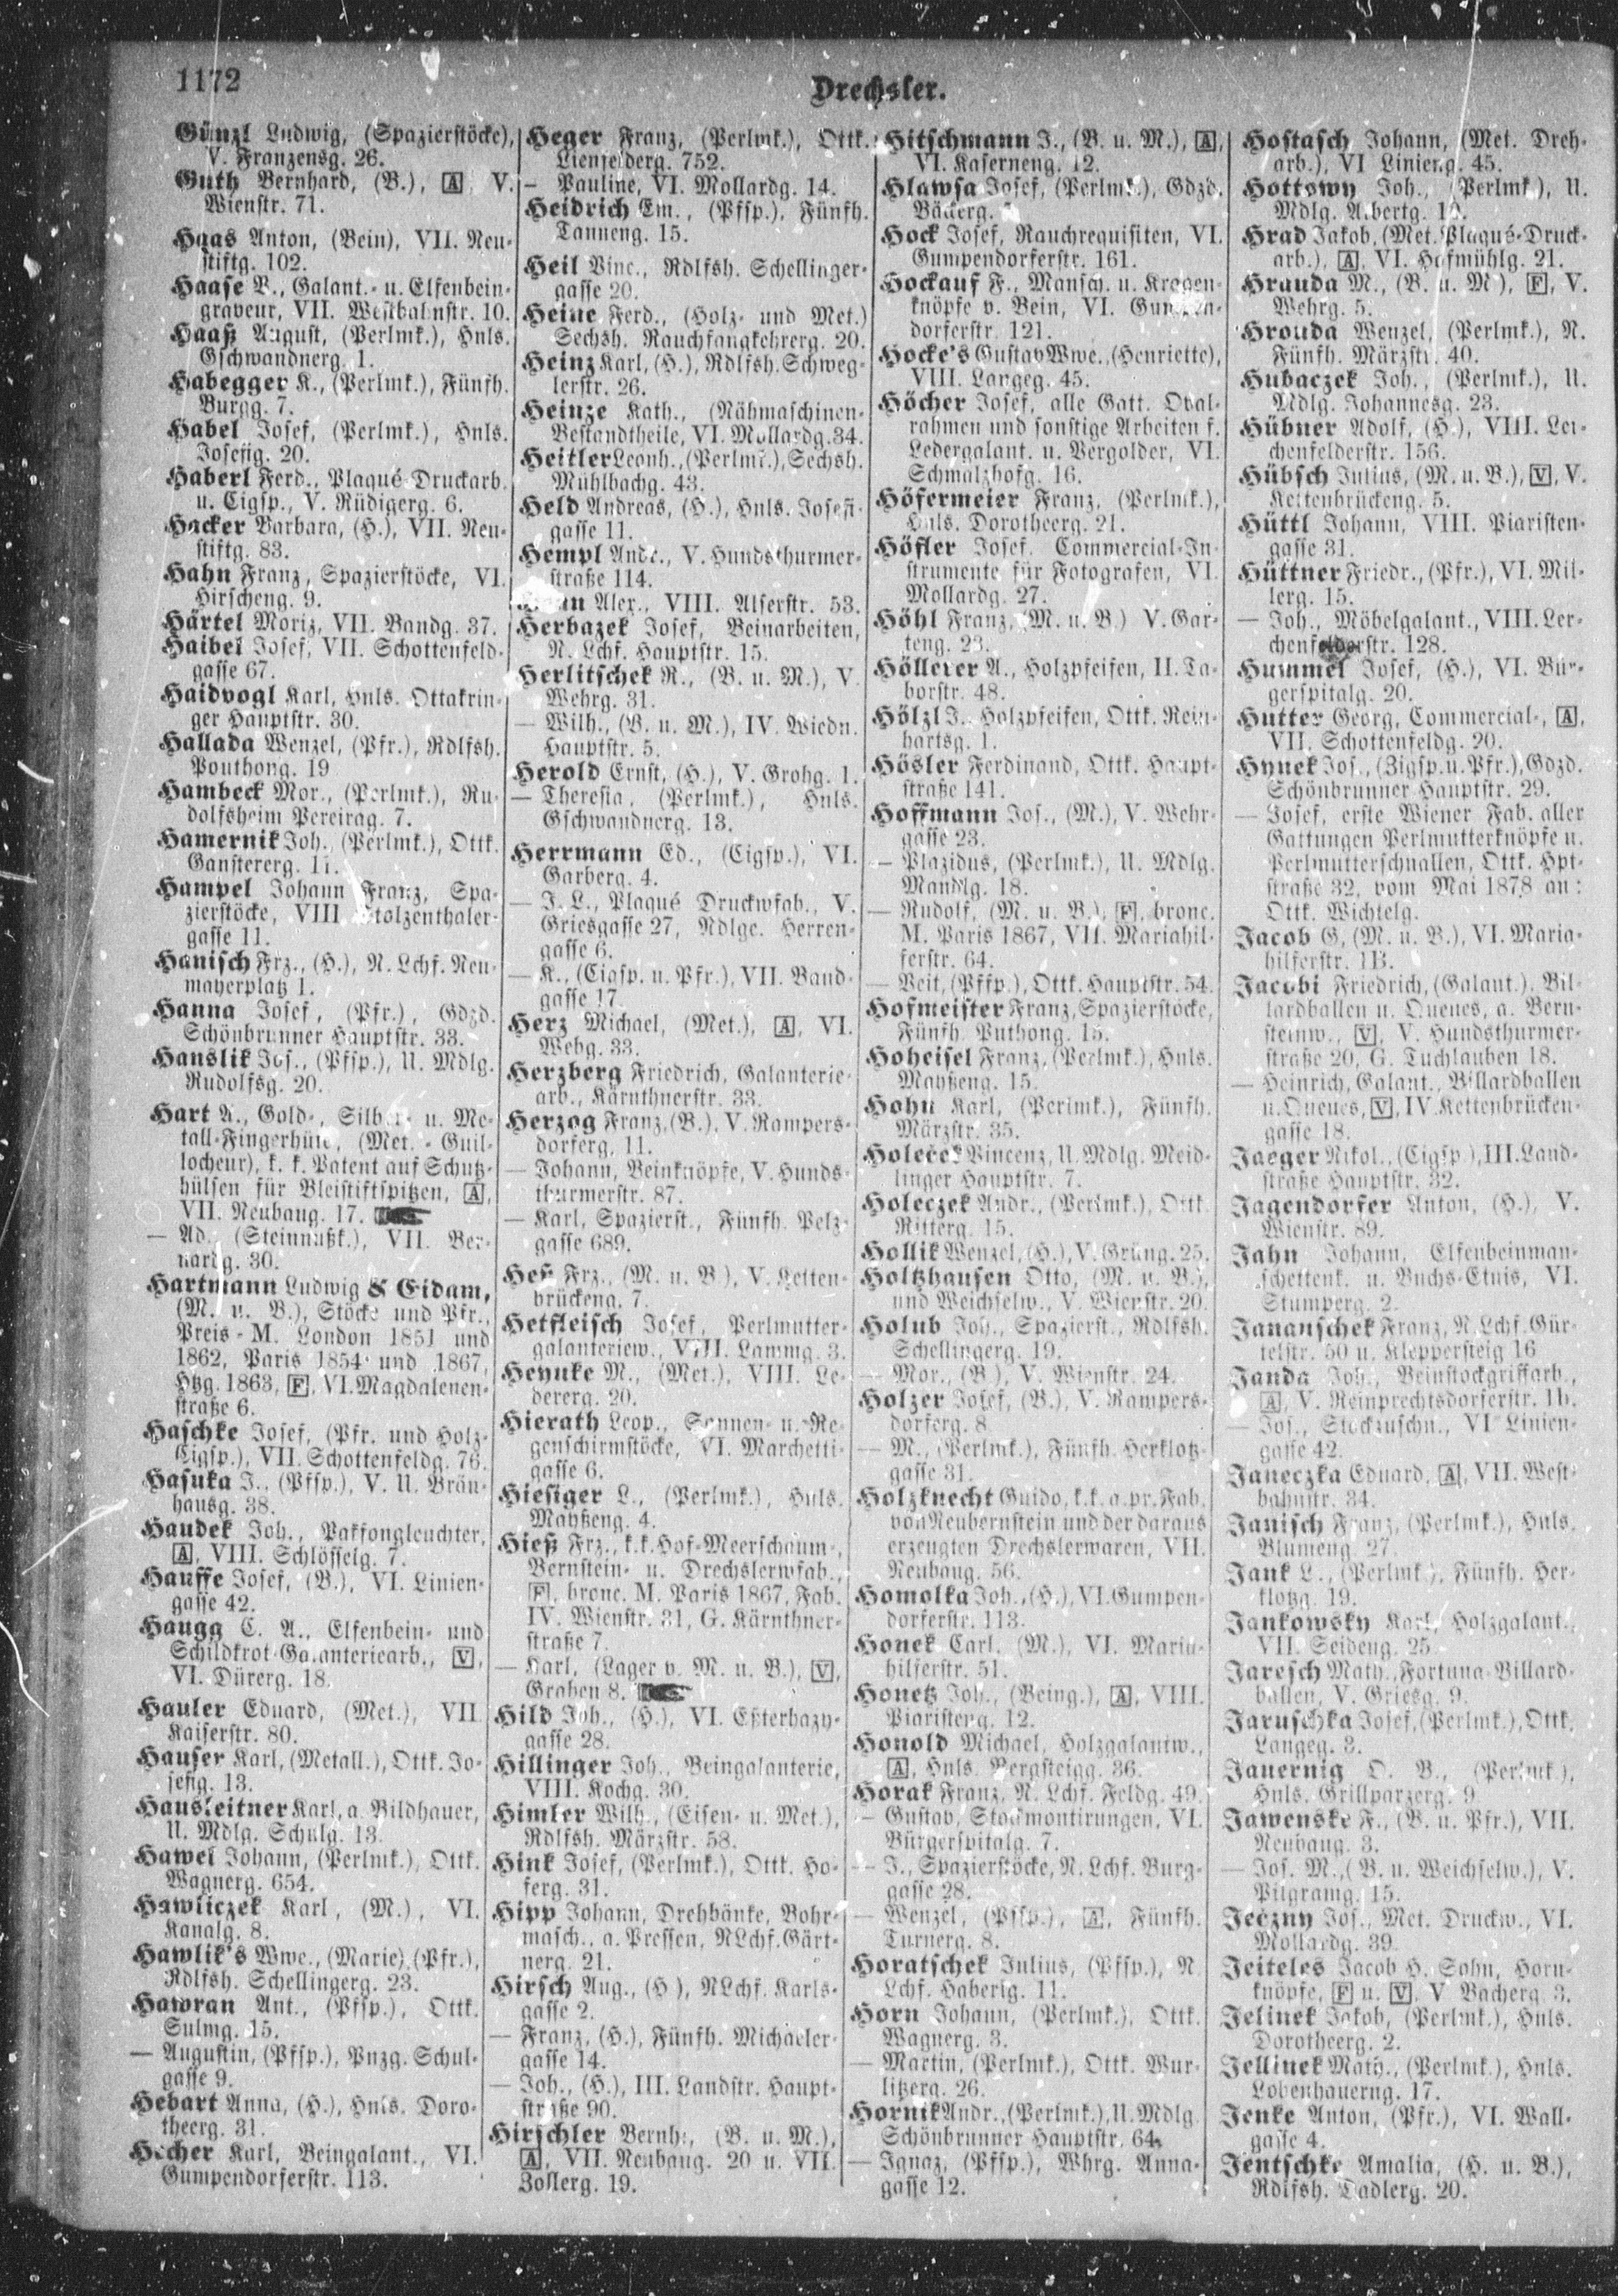 1172
Drechsler.
Günzl Ludwig, (Spazierstöcke),
V. Franzensg. 26.
Guth Bernhard, (B.), A V.
Wienstr. 71.
Haas Anton, (Bein), VII. Neu-
stiftg. 102.
Haase V., Galant.- u. Elfenbein-
graveur, VII. Westbahnstr. 10.
Haaß August, (Perlmk.), Hnls.
Gschwandnerg. 1.
Habegger K., (Perlmk.), Fünfh.
Burgg. 7.
Habel Josef, (Perlmk.), Hnls.
Josefig. 20.
Haberl Ferd., Plaqué-Druckarb.
u. Cigsp., V. Rüdigerg. 6.
Hacker Barbara, (H.), VII. Neu-
stiftg. 83.
Hahn Franz, Spazierstöcke, VI.
Hirscheng. 9.
Härtel Moriz, VII. Bandg. 37.
Haibel Josef, VII. Schottenfeld-
gasse 67.
Haidvogl Karl, Hnls. Ottakrin-
ger Hauptstr. 30.
Hallada Wenzel, (Pfr.), Rdlfsh.
Pouthong. 19
Hambeck Mor., (Perlmk.), Ru-
dolfsheim Pereirag. 7.
Hamernik Joh., (Perlmk.), Ottk.
Gansterg. 11.
Hampel Johann Franz, Spa-
zierstöcke, VIII Stolzenthaler-
gasse 11.
Hanisch Frz., (H.), N. Lchf. Neu-
mayerplatz 1.
Hanna Josef, (Pfr.), Gdzd.
Schönbrunner Hauptstr. 33.
Hanslik Jos., (Pfsp.), U. Mdlg.
Rudolfsg. 20.
Hart A., Gold-, Silber- u. Me-
tall-Fingerhüte, (Met. - Guil-
locheur), k. k. Patent auf Schutz-
hülsen für Bleistiftspitzen, A,
VII. Neubaug. 17.
— Ad. (Steinnußk.), VII. Ber-
nardg. 30.
Hartmann Ludwig & Eidam,
(M. u. B.), Stöcke und Pfr.,
Preis - M. London 1851 und
1862, Paris 1854 und 1867,
Htzg. 1863, F, VI. Magdalenen-
straße 6.
Haschke Josef, (Pfr. und Holz-
Cigsp.), VII. Schottenfeldg. 76.
Hasuka J., (Pfsp.), V. U. Bräu-
hausg. 38.
Haudek Joh., Pakfongleuchter,
A, VIII. Schlösselg. 7.
Hauffe Josef, (B.), VI. Linien-
gasse 42.
Haugg C. A., Elfenbein- und
Schildkrot-Galanteriearb., V,
VI. Dürerg. 18.
Hauler Eduard, (Met.), VII
Kaiserstr. 80.
Hauser Karl, (Metall.), Ottk. Jo-
sefig. 13.
Hausleitner Karl, a. Bildhauer,
U. Mdlg. Schulg. 13.
Hawel Johann, (Perlmk.), Ottk.
Wagnerg. 654.
Hawliczek Karl, (M.), VI.
Kanalg. 8.
Hawlik's Wwe., (Marie), (Pfr.),
Rdlfsh. Schellingerg. 23.
Hawran Ant., (Pfsp.), Ottk.
Sulmg. 15.
— Augustin, (Pfsp.), Pnzg. Schul-
gasse 9.
Hebart Anna, (H.), Hnls. Doro-
theerg. 31.
Hecher Karl, Beingalant., VI.
Gumpendorferstr. 113.
Heger Franz, (Perlmk.), Ottk.
Lienfelderg. 752.
— Pauline, VI. Mollardg. 14.
Heidrich Em., (Pfsp.), Fünfh.
Tanneng. 15.
Heil Vinc., Rdlfsh. Schellinger-
gasse 20.
Heine Ferd., (Holz- und Met.)
Sechsh. Rauchfangkehrerg. 20.
Heinz Karl, (H.), Rdlfsh. Schweg-
lerstr. 26.
Heinze Kath., (Nähmaschinen-
Bestandtheile, VI. Mollardg. 34.
Heitler Leonh., (Perlmk.), Sechsh.
Mühlbachg. 43.
Held Andreas, (H.), Hnls. Josefi-
gasse 11.
Hempl Andr., V. Hundsthurmer-
straße 114.
Alex., VIII. Alserstr. 53.
Herbazek Josef, Beinarbeiten,
N. Lchf. Hauptstr. 15.
Herlitschek R., (B. u. M.), V.
Wehrg. 31.
— Wilh., (B. u. M.), IV. Wiedn.
Hauptstr. 5.
Herold Ernst, (H.), V. Grohg. 1.
— Theresia, (Perlmk.), Hnls.
Gschwandnerg. 13.
Herrmann Ed., (Cigsp.), VI.
Garberg. 4.
— J. L., Plaqué Druckwfab., V.
Griesgasse 27, Ndlge. Herren-
gasse 6.
— K., (Cigsp. u. Pfr.), VII. Band-
gasse 17.
Herz Michael, (Met.), A, VI.
Webg. 33.
Herzberg Friedrich, Galanterie-
arb., Kärnthnerstr. 33.
Herzog Franz, (B.), V. Rampers-
dorferg. 11.
— Johann, Beinknöpfe, V. Hunds-
thurmerstr. 87.
— Karl, Spazierst., Fünfh. Pelz-
gasse 689.
Heß Frz., (M. u. B.), V. Ketten-
brückeng. 7.
Hetfleisch Josef, Perlmutter-
galanteriew., VIII. Lammg. 3.
Heynke M., (Met.), VIII. Le-
dererg. 20.
Hierath Leop., Sonnen- u. Re-
genschirmstöcke, VI. Marchetti-
gasse 6.
Hiesiger L., (Perlmk.), Hnls.
Mayßeng. 4.
Hieß Frz., k. k. Hof-Meerschaum-,
Bernstein- u. Drechslerwfab.,
F, bronc. M. Paris 1867, Fab.
IV. Wienstr. 31, G. Kärnthner-
straße 7.
— Karl, (Lager v. M. u. B.), V,
Graben 8.
Hild Joh., (H.), VI. Esterhazy-
gasse 28.
Hillinger Joh., Beingalanterie,
VIII. Kochg. 30.
Himler Wilh., (Eisen- u. Met.),
Rdlfsh. Märzstr. 58.
Hink Josef, (Perlmk.), Ottk. Ho-
ferg. 31.
Hipp Johann, Drehbänke, Bohr-
masch., a. Pressen, NLchf. Gärt-
nerg. 21.
Hirsch Aug., (H), NLchf. Karls-
gasse 2.
— Franz, (H.), Fünfh. Michaeler-
gasse 14.
— Joh., (H.), III. Landstr. Haupt-
straße 90.
Hirschler Bernh., (B. u. M.),
A, VII. Neubaug. 20 u. VII.
Zollerg. 19.
Hitschmann J., (B. u. M.), A,
VI. Kaserneng. 12.
Hlawsa Josef, (Perlmk.), Gdzd.
Bäckerg.
Hock Josef, Rauchrequisiten, VI.
Gumpendorferstr. 161.
Hockauf F., Mansch. u. Kragen-
knöpfe v. Bein, VI. Gumpen-
dorferstr. 121.
Hocke's Gustav Wwe., (Henriette),
VIII. Langeg. 45.
Höcher Josef, alle Gatt. Oval-
rahmen und sonstige Arbeiten f.
Ledergalant. u. Vergolder, VI.
Schmalzhofg. 16.
Höfermeier Franz, (Perlmk.),
Hnls. Dorotheerg. 21.
Höfler Josef. Commercial-In-
strumente für Fotografen, VI.
Mollardg. 27.
Höhl Franz, (M. u. B.) V. Gar-
teng. 23.
Höllerer A., Holzpfeifen, II. Ta-
borstr. 48.
Hölzl J., Holzpfeifen, Ottk. Rein-
hartsg. 1.
Hösler Ferdinand, Ottk. Haupt-
straße 141.
Hoffmann Jos., (M.), V. Wehr-
gasse 23.
— Plazidus, (Perlmk.), U. Mdlg.
Mandlg. 18.
— Rudolf, (M. u. B.), F, bronc.
M. Paris 1867, VII. Mariahil-
ferstr. 64.
— Veit, (Pffp.), Ottk. Hauptstr. 54.
Hofmeister Franz, Spazierstöcke,
Fünfh. Puthong. 15.
Hoheisel Franz, (Perlmk.), Hnls.
Mayßeng. 15.
Hohn Karl, (Perlmk.), Fünfh.
Märzstr. 35.
Holeček Vincenz, U. Mdlg. Meid-
linger Hauptstr. 7.
Holeczek Andr., (Perlmk.), Ottk.
Ritterg. 15.
Hollik Wenzel, (H.), V. Grüng. 25.
Holtzhausen Otto, (M. u. B.),
und Weichselw., V. Wienstr. 20.
Holub Joh., Spazierst., Rdlfsh.
Schellingerg. 19.
— Mor., (B.), V. Wienstr. 24.
Holzer Josef, (B.), V. Rampers-
dorferg. 8
— M., (Perlmk.), Fünfh. Herklotz-
gasse 31.
Holzknecht Guido, k. k. a. pr. Fab.
von Neubernstein und der daraus
erzeugten Drechslerwaren, VII.
Neubaug. 56.
Homolka Joh., (H.), VI. Gumpen-
dorferstr. 113.
Honek Carl, (M.), VI. Maria-
hilferstr. 51.
Honetz Joh., (Being.), A, VIII.
Piaristeng. 12.
Honold Michael, Holzgalantw.,
A, Hnls. Bergsteigg. 36.
Horak Franz, N. Lchf. Feldg. 49.
— Gustav, Stockmontirungen, VI.
Bürgerspitalg. 7.
— J., Spazierstöcke, N. Lchf. Burg-
gasse 28.
— Wenzel, (Pfsp.), A, Fünfh.
Turnerg. 8.
Horatschek Julius, (Pfsp.), N
Lchf. Haberlg. 11.
Horn Johann, (Perlmk.), Ottk.
Wagnerg. 3.
— Martin, (Perlmk.), Ottk. Wur-
litzerg. 26.
Hornik Andr., (Perlmk.), U. Mdlg
Schönbrunner Hauptstr. 64.
— Ignaz, (Pfsp.), Whrg. Anna-
gasse 12.
Hostasch Johann, (Met. Dreh-
arb.), VI Linieng. 45.
Hottowy Joh., (Perlmk), U.
Mdlg. Albertg.
Hrad Jakob, (Met. Plaqué-Druck-
arb.), A, VI. Hofmühlg. 21.
Hranda M., (B. u. M), F, V.
Wehrg. 5.
Hrouda Wenzel, (Perlmk.), N.
Fünfh. Märzstr. 40.
Hubaczek Joh., (Perlmk.), U.
Mdlg. Johannesg. 23.
Hübner Adolf, (H.), VIII. Ler-
chenfelderstr. 156.
Hübsch Julius, (M. u. B.), V, V.
Kettenbrückeng. 5.
Hüttl Johann, VIII. Piaristen-
gasse 31.
Hüttner Friedr., (Pfr.), VI. Mil-
lerg. 15.
— Joh., Möbelgalant., VIII. Ler-
chenfelderstr. 128.
Hummel Josef, (H.), VI. Bür-
gerspitalg. 20.
Hutter Georg, Commercial-, A,
VII. Schottenfeldg. 20.
Hynek Jos., (Zigsp. u. Pfr.), Gdzd.
Schönbrunner Hauptstr. 29.
— Josef, erste Wiener Fab. aller
Gattungen Perlmutterknöpfe u.
Perlmutterschnallen, Ottk. Hpt-
straße 32, vom Mai 1878 an:
Ottk. Wichtelg.
Jacob G, (M. u. B.), VI. Maria-
hilferstr. 113.
Jacobi Friedrich, (Galant.). Bil-
lardballen u. Queues, a. Bern-
steinw., V, V. Hundsthurmer-
straße 20, G. Tuchlauben 18.
— Heinrich, Galant., Billardballen
u. Queues, V, IV. Kettenbrücken-
gasse 18.
Jaeger Nikol., (Cigsp), III. Land-
straße Hauptstr. 32.
Jagendorfer Anton, (H.), V.
Wienstr. 89.
Jahn Johann, Elfenbeinman-
schettenk. u. Buchs-Etuis, VI.
Stumperg. 2.
Jananschek Franz, N. Lchf. Gür-
telstr. 50 u. Kleppersteig 16
Janda Joh., Beinstockgriffarb.,
A, V. Reinprechtsdorferstr. 1b.
— Jos., Stockzuschn., VI Linien-
gasse 42.
Janeczka Eduard, A, VII. West-
bahnstr. 34.
Janisch Franz, (Perlmk.), Hnls.
Blumeng. 27.
Jank L., (Perlmk.), Fünfh. Her-
klotzg. 19.
Jankowsky Karl, Holzgalant.,
VII. Seideng. 25
Jaresch Math., Fortuna-Billard-
ballen, V. Griesg. 9.
Jaruschka Josef, (Perlmk.), Ottk.
Langeg. 3.
Jauernig O. B., (Perlmk.),
Hnls. Grillparzerg. 9
Jawenske F., (B. u. Pfr.), VII.
Neubaug. 3.
— Jos. M., (B. u. Weichselw.), V.
Pilgramg. 15.
Ječzny Jos., Met. Druckw., VI.
Mollardg. 39
Jeiteles Jacob H. Sohn, Horn-
knöpfe, F u. V, V Bacherg. 3.
Jelinek Jakob, (Perlmk.), Hnls.
Dorotheerg. 2.
Jellinek Math., (Perlmk.), Hnls.
Lobenhauerng. 17.
Jenke Anton, (Pfr.), VI. Wall-
gasse 4.
Jentschke Amalia, (H. u. B.),
Rdlfsh. Dadlerg. 20.